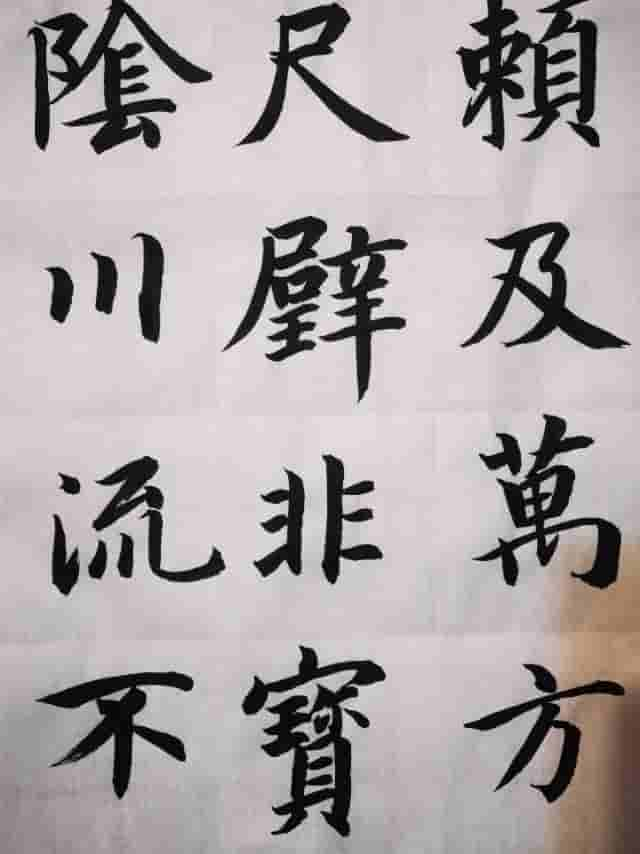 賴及萬方
尺璧非寶
陰川流不